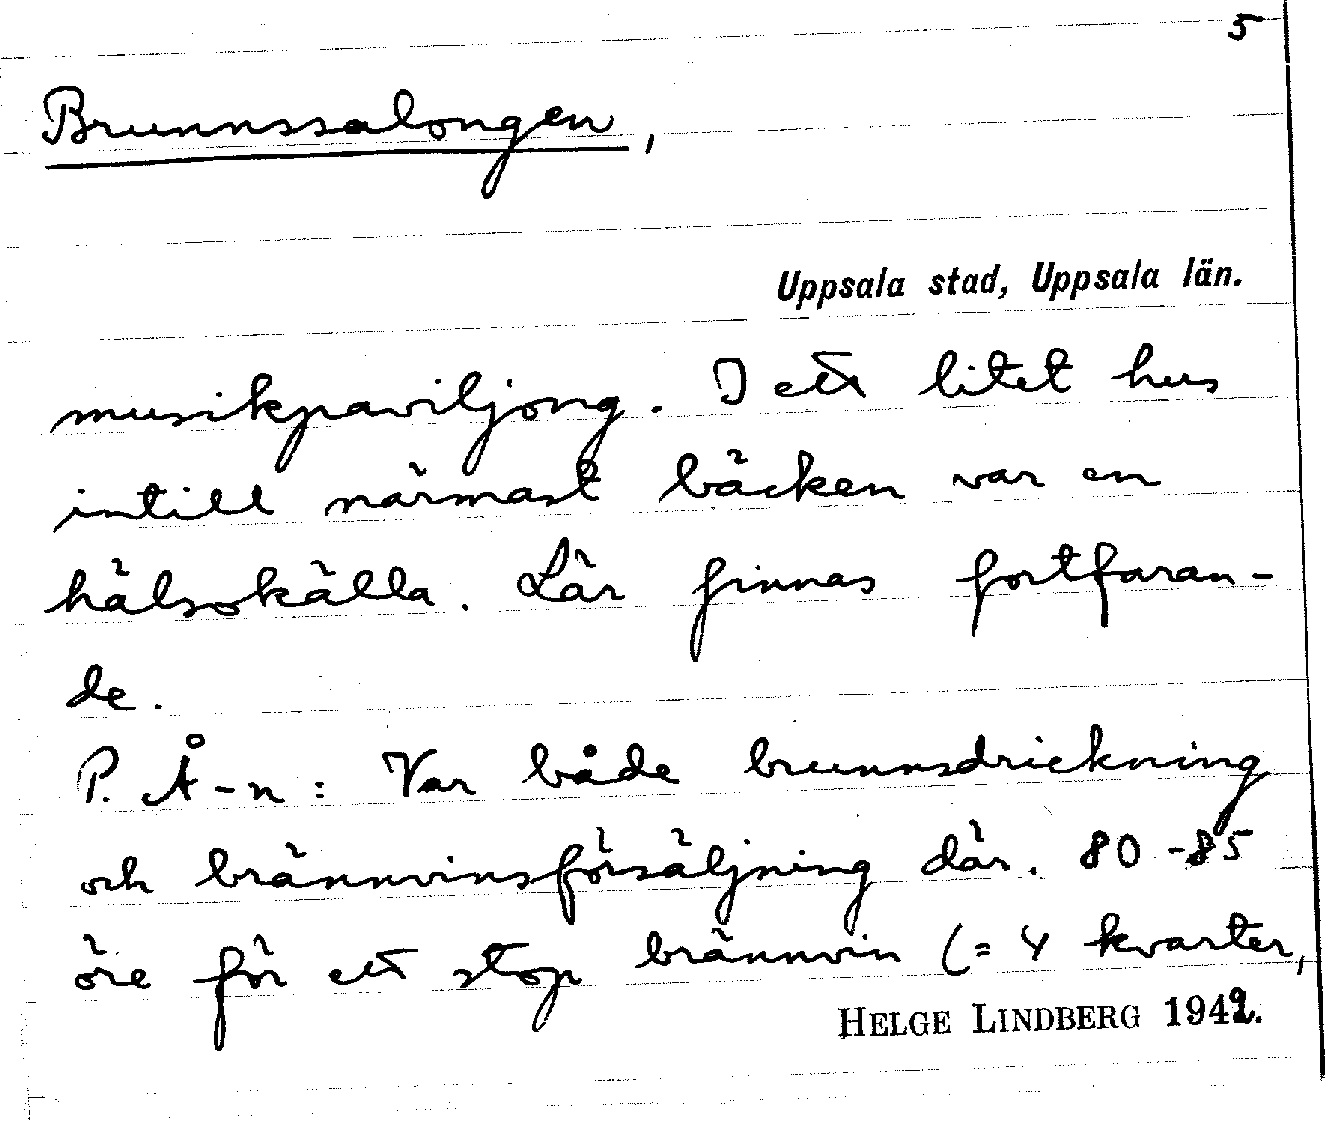 5
Brunnssalongen,
Uppsala stad, Uppsala län.
musikpaviljong. I ett litet hus
intill närmast bäcken var en
hälsokälla. Lär finnas fortfaran-
de.
P. Å-n: Var både brunnsdrickning
och brännvinsförsäljning där. 80-85
öre för ett stop brännvin (= 4 kvarter,
HELGE LINDBERG 1942.